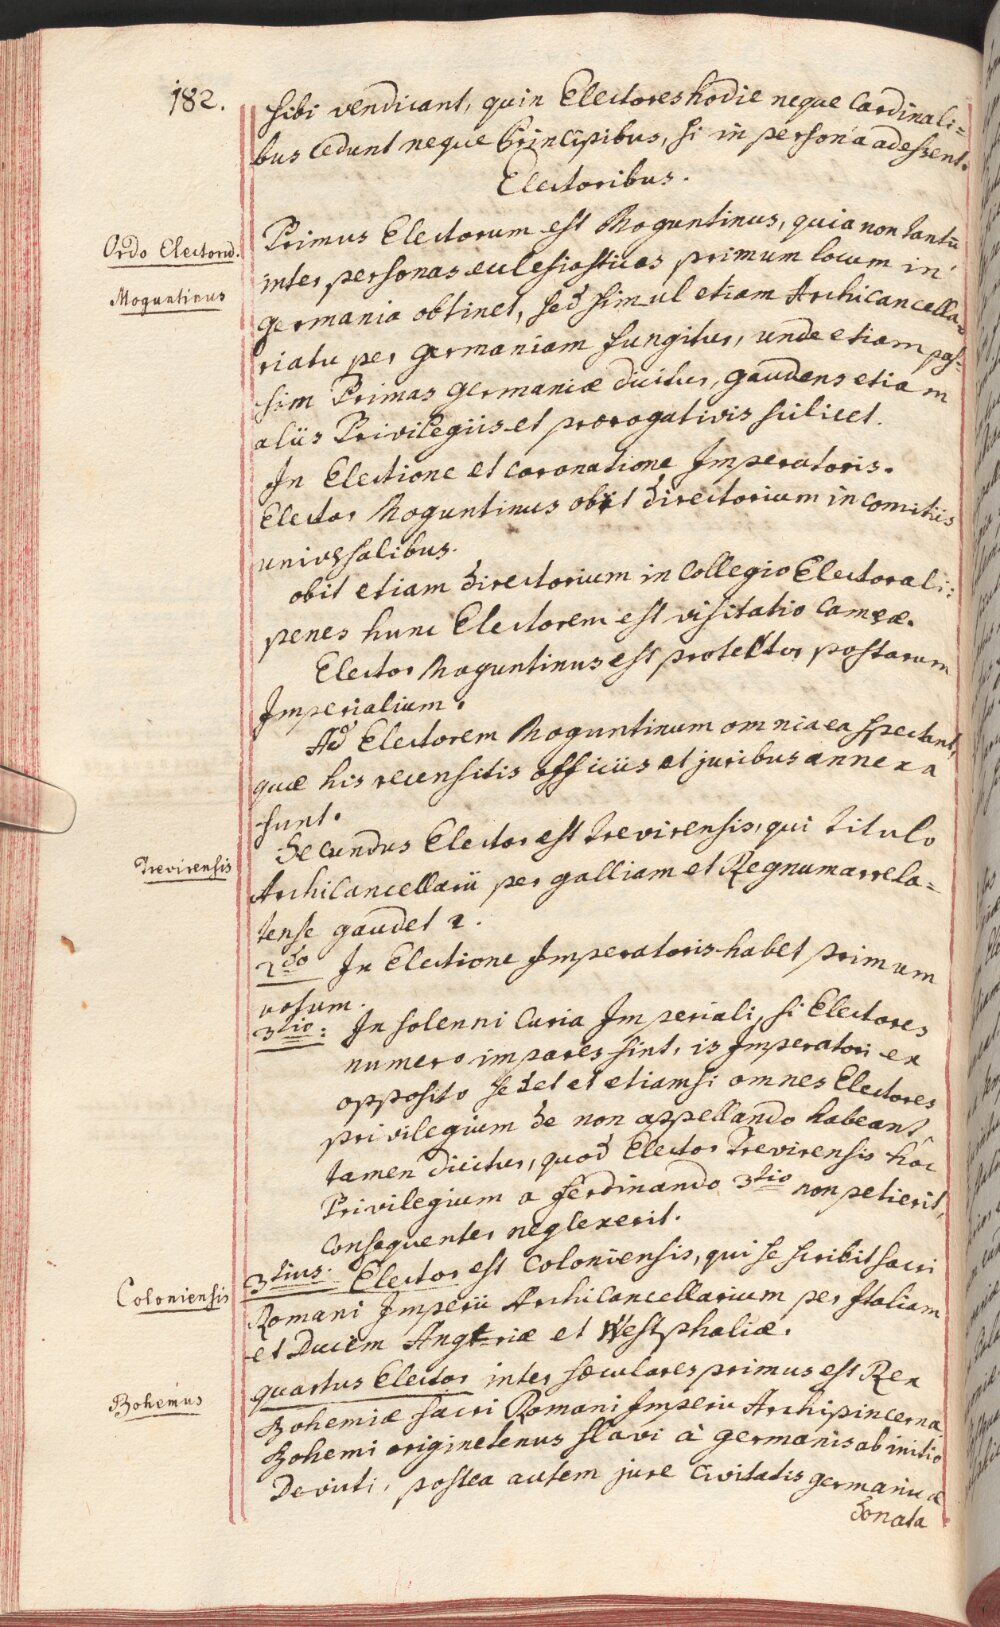 182.
sibi vendicant, quin Electores hodie neque Cardinali=
bus cedunt neque Principibus, si in persona adessent.
Electoribus.
Ordo Electorū.
Moguntinus
Primus Electorum est Moguntinus, quia non tantū
inter personas eclesiasticas primum locum in
germania obtinet, sed simul etiam Archicancella=
riatu per germaniam fungitur, unde etiam pas=
sim Primas germaniæ dicitur, gaudens etiam
aliis Privilegiis et prorogativis scilicet.
In Electione et coronatione Imperatoris.
Elector Moguntinus obit directorium in comitiis
universalibus.
obit etiam directorium in Collegio Electorali:
penes hunc Electorem est visitatio Cameræ.
Elector Moguntinus est protector postarum
Imperialium.
Ad Electorem Moguntinum omnia ea spectant,
quæ his recensitis officiis et juribus annexa
sunt.
Trevirensis
Secundus Elector est trevirensis, qui titulo
Archicancellarii per galliam et Regnum arrela=
tense gaudet 2.
2do In Electione Imperatoris habet primum
votum.
3tio: In solenni Curia Imperiali, si Electores
numero impares sint, is Imperatori ex
opposito sedet et etiamsi omnes Electores
privilegium de non appellando habeant,
tamen dicitur, quod Elector Trevirensis hoc
Privilegium a ferdinando 3tio non petierit,
consequenter neglexerit.
Coloniensis
3tius. Elector est Coloniensis, qui se scribit sacri
Romani Imperii Archicancellarium per Italiam
et Ducem Angriæ et Westphaliæ.
Bohemus
quartus Elector inter sæculares primus est Rex
Bohemiæ sacri Romani Imperii Archipincerna
Bohemi originetenus slavi à germanis ab initio
Devicti, postea autem jure Civitatis germanicæ
donata